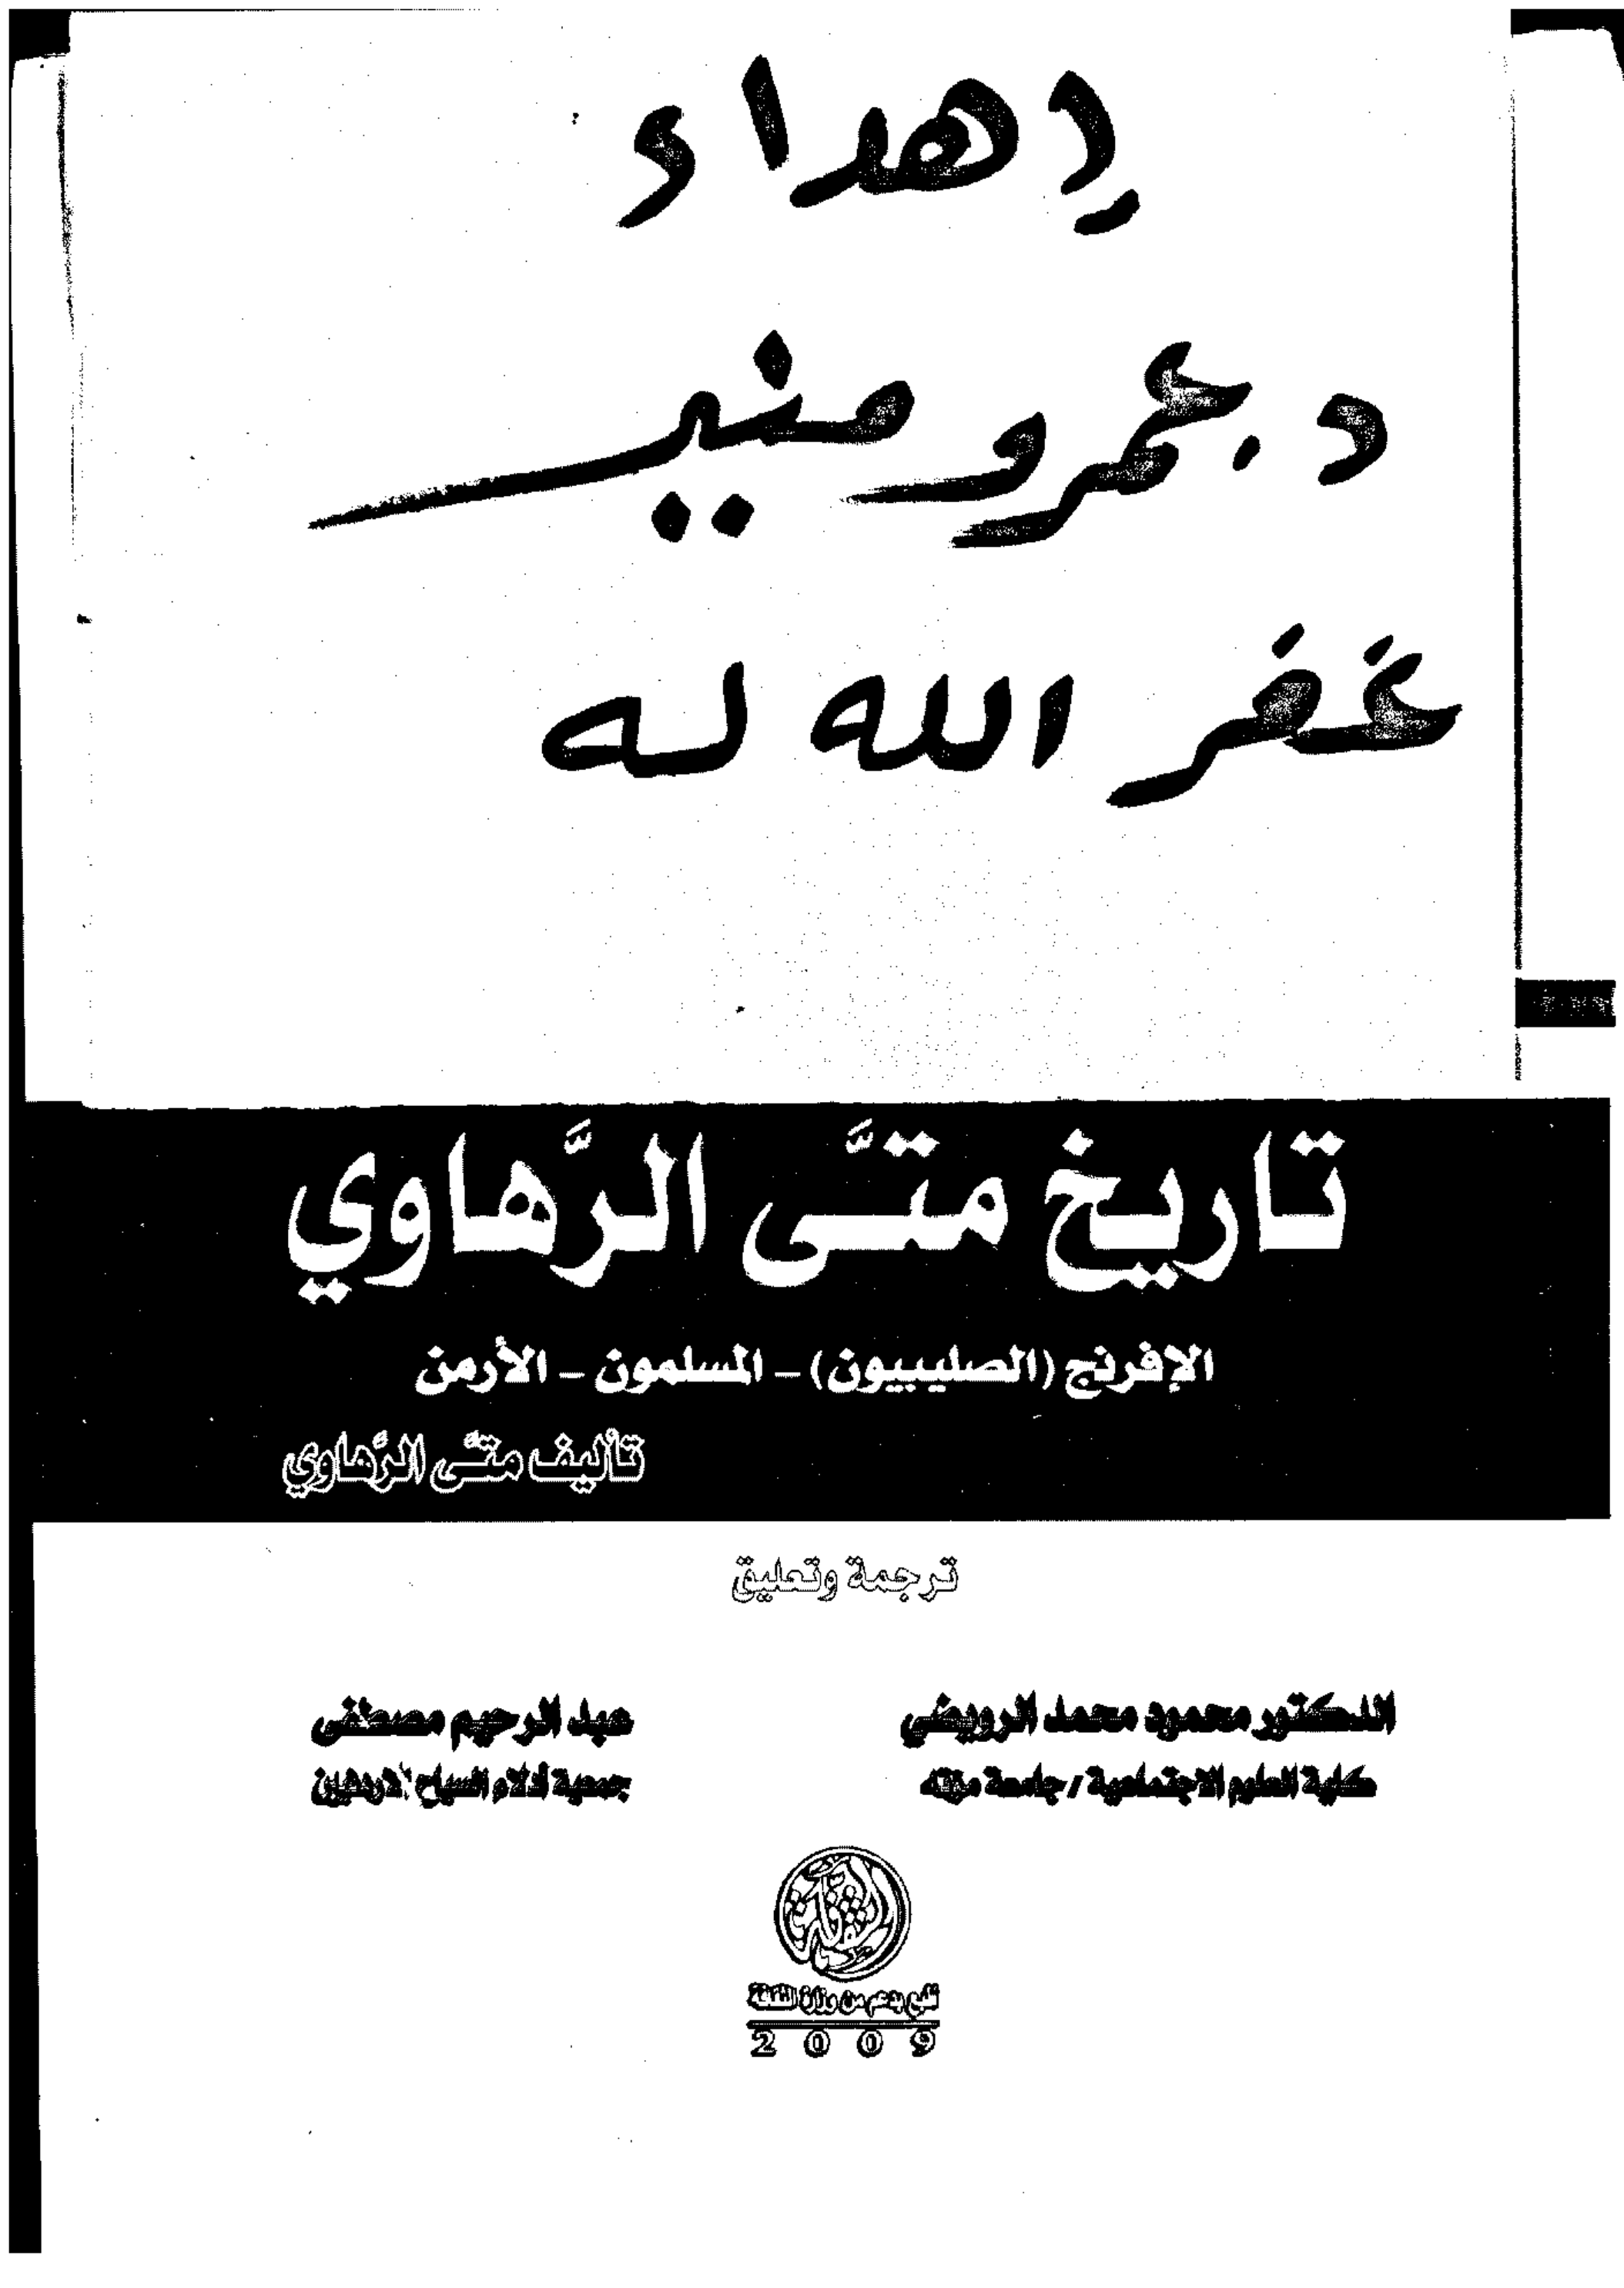 إهداء
د. عمرو منير
غفر الله له
تاريخ متَّى الرَّهاوي
الإفرنج (الصليبيون) – المسلمون – الأرمن
تأليف متَّى الرَّهاوي
ترجمة وتعليق
الدكتور محمود محمد الرويضي
كلية العلوم الاجتماعية / جامعة مؤتة
عبد الرحيم مصطفى
جمعية أدلاء السياح الأردنيين
نشر بدعم من وزارة الثقافة
2009